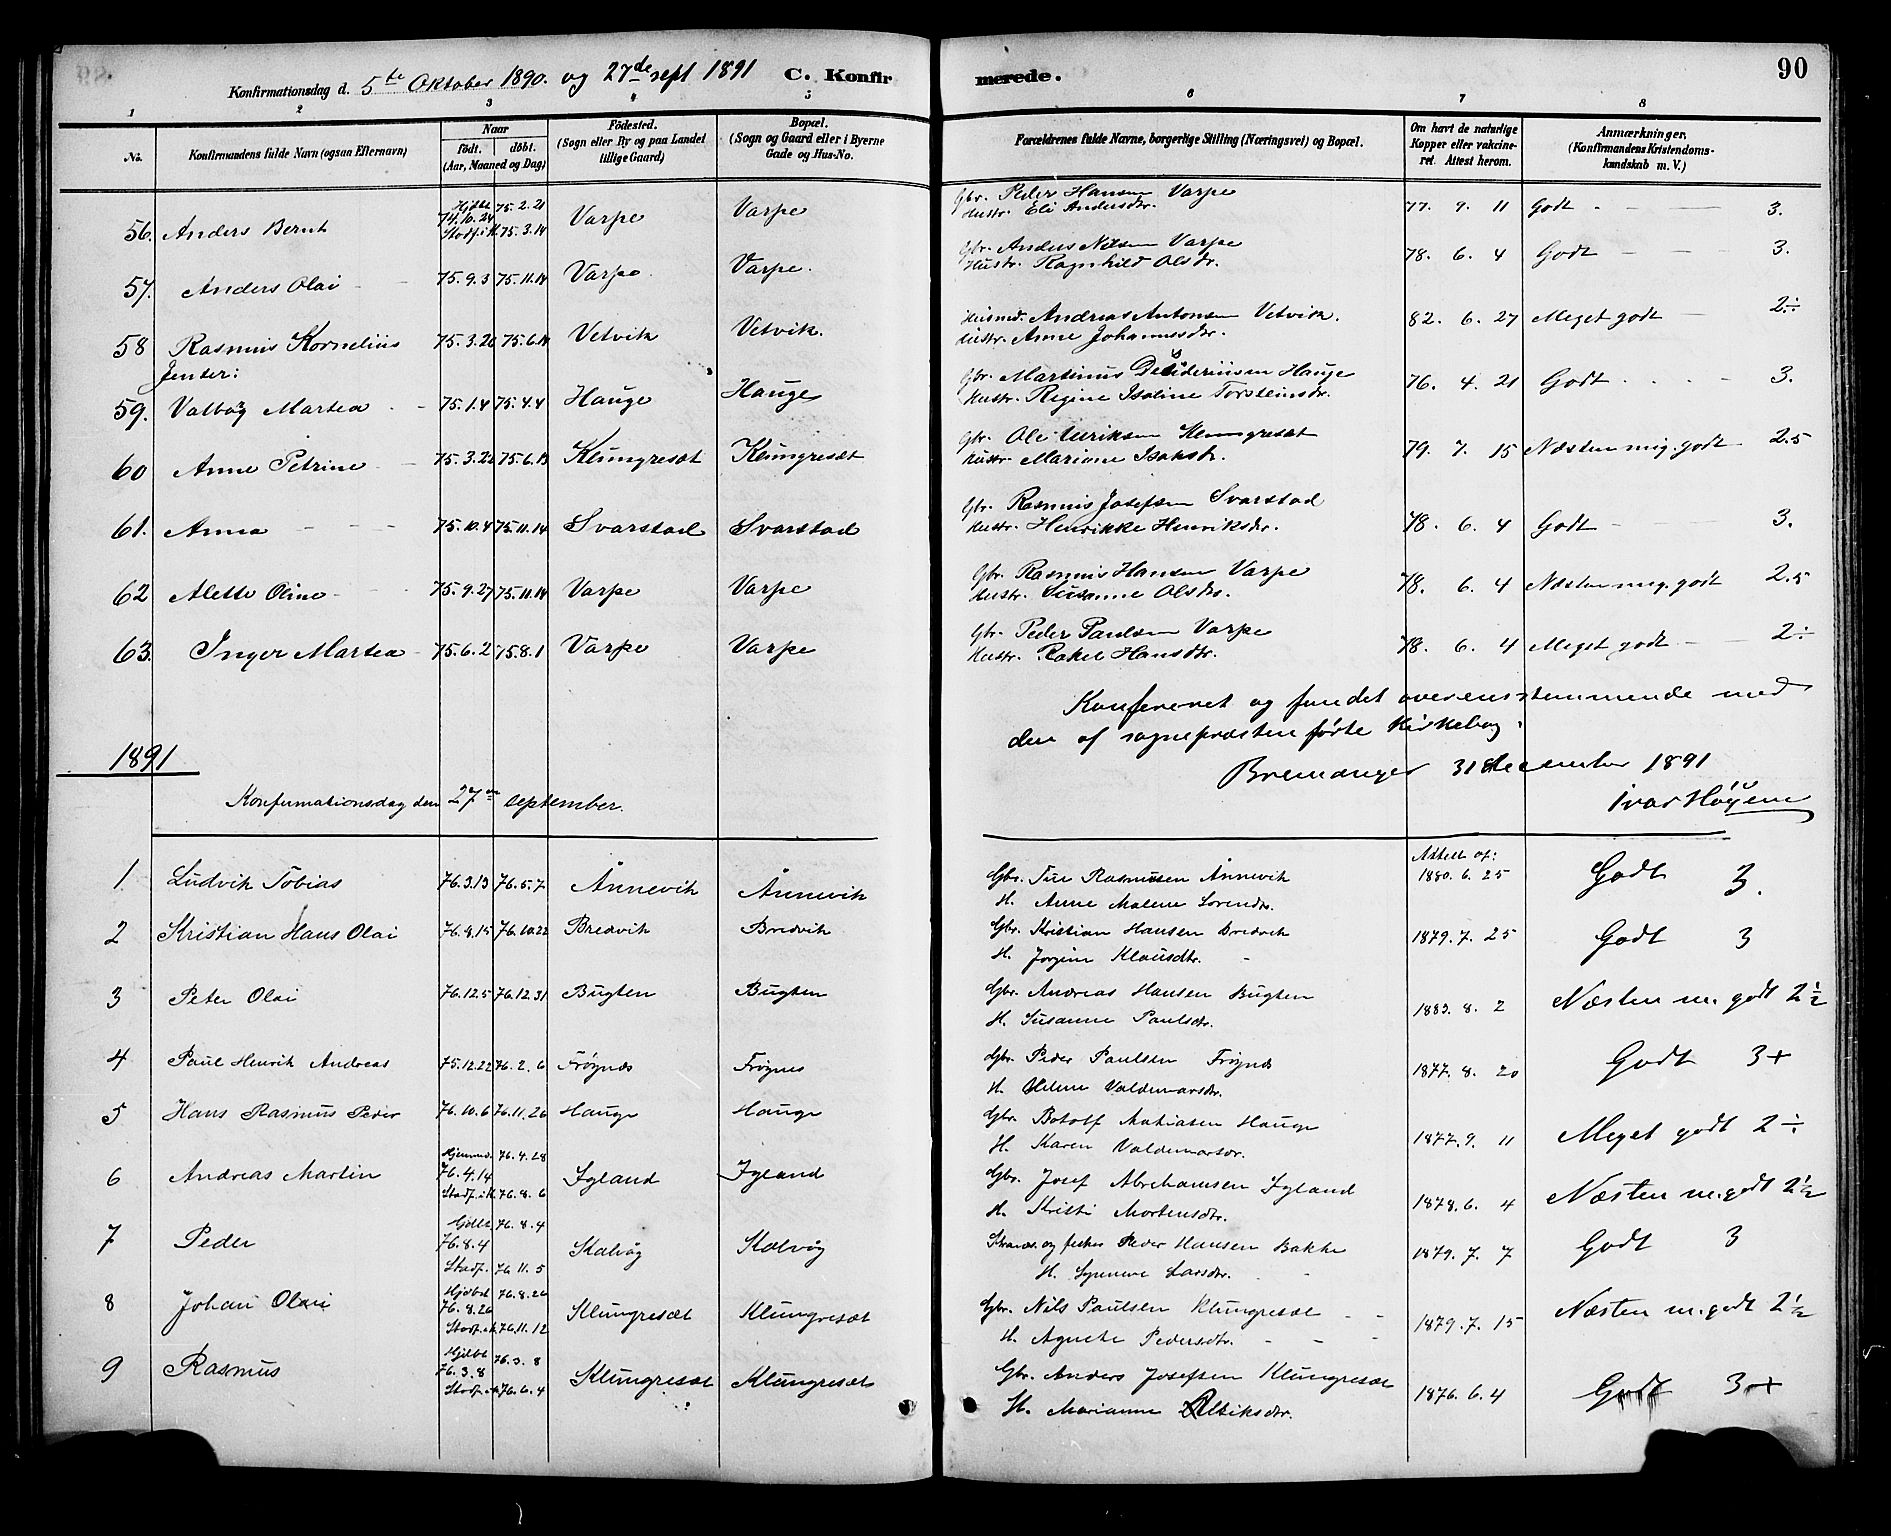 Konfirmationsdag d. 5te Oktober 1890. og 27de sept 1891 C. Konfirmerede. 90
1 2 3 4 5 6 7 8
No.
Konfirmandens fulde Navn (ogsaa Efternavn)
Naar
født. døbt.
(Aar, Maaned og Dag)
Fødested.
(Sogn eller By og paa Landet
tillige Gaard)
Bopæl.
(Sogn og Gaard eller i Byerne
Gade og Hus-No.
Forældrenes fulde Navne, borgerlige Stilling (Næringsvei) og Bopæl.
Om havt de naturlige
Kopper eller vakcine-
ret. Attest herom.
Anmærkninger.
(Konfirmandens Kristendoms-
kundskab m. V.)
56. Anders Bernt Hjdbt 74.10.24 Stadf. i K. 75.2.21 75.3.14 Varpe Varpe Gbr. Peder Hansen Varpe 77. 9. 11 Godt 3.
Hustr. Eli Andersdtr.
57. Anders Olai 75.9.3 75.11.14 Varpe Varpe. Gbr. Anders Nilsen Varpe 78. 6. 4 Godt 3.
Hustr. Ragnhild Olsdr.
58 Rasmus Kornelius 75.3.26 75.6.14 Vetvik Vetvik. Husmd. Andreas Antonsen Vetvik. 82. 6. 27 Meget godt 2÷
Hustr. Anne Johannesdr.
Jenter:
59. Valbog Martea 75.1.4 75.4.4 Hauge Hauge Gbr. Martinus Desideriusen Hauge 76. 4. 21 Godt 3.
Hustr. Regine Iseline Torsteinsdr.
60 Anne Petrine 75.3.26 75.6.13 Klungresæt Klungresæt Gbr. Ole Ulriksen Klungresæt 79. 7. 15 Næsten meg. godt 2.5
Hustr. Mariane Isaksdr.
61. Anna 75.10.4 75.11.14 Svarstad Svarstad Gbr. Rasmus Josefsen Svarstad 78. 6. 4 Godt 3.
Hustr. Henrikke Henriksdr.
62 Alette Oline 75.9.27 75.11.14 Varpe Varpe Gbr. Rasmus Hansen Varpe 78. 6. 4 Næsten meg. godt 2.5
Hustr. Susanne Olsdr.
63. Inger Martea 75.6.2 75.8.1 Varpe Varpe Gbr. Peder Paulsen Varpe 78. 6. 4 Meget godt 2÷
Hustr. Rakel Hansdtr.
Konfereret og fundet overensstemmende med
den af sognepræsten førte Kirkebog.
Bremanger 31 december 1891
Ivar Høyem
1891
Konfirmationsdag den 27de september.
1 Ludvik Tobias 76.3.13 76.5.7 Ånnevik Ånnevik Gbr. Tue Rasmusen Ånnevik Attest af: 1880. 6. 25 Godt 3.
H. Anne Malene Sørendr.
2 Kristian Hans Olai 76.8.15 76.10.22 Bredvik Bredvik Gbr. Kristian Hansen Bredvik 1879. 7. 25 Godt 3
H. Jørgine Klausdtr.
3 Peter Olai 76.12.5 76.12.31 Bugten Bugten Gbr. Andreas Hansen Bugten 1883. 8. 2 Næsten m. godt 2½
H. Susanne Paulsdtr.
4 Paul Henrik Andreas 75.12.22 76.2.6 Frøynes Frøynes Gbr. Peder Paulsen Frøynes 1877. 8. 20 Godt 3+
H. Helene Valdemarsdr.
5 Hans Rasmus Peder 76.10.6 76.11.26 Hauge Hauge Gbr. Botolf Matiasen Hauge 1877. 9. 11 Meget godt 2÷
H. Karen Valdemarsdr.
6 Andreas Martin Hjemmd. 76.4.14 Stadf. i K. 76.4.28 76.8.6 Igland Igland Gbr. Josef Abrahamsen Igland 1878. 6. 4 Næsten m. godt 2½
H. Kristi Mortensdtr.
7 Peder Hjdbt 76.8.4 Stadf. 76.8.4 76.11.5 Kalvøg Kalvøg Strands. og fisker Peder Hansen Bakke 1879. 7. 7 Godt 3
H. Synneve Larsdtr.
8 Johan Olai Hjdbt 76.8.26 Stadf. i K. 76.8.26 76.11.12 Klungresæt Klungresæt Gbr. Nils Paulsen Klungresæt 1879. 7. 15 Næsten m. godt 2½
H. Agnete Pedersdtr.
9 Rasmus Hjdbt 76.3.8 Stadf. i K. 76.3.8 76.6.4 Klungresæt Klungresæt Gbr. Anders Josefsen Klungresæt 1876. 6. 4 Godt 3+
H. Marianne Alriksdtr.